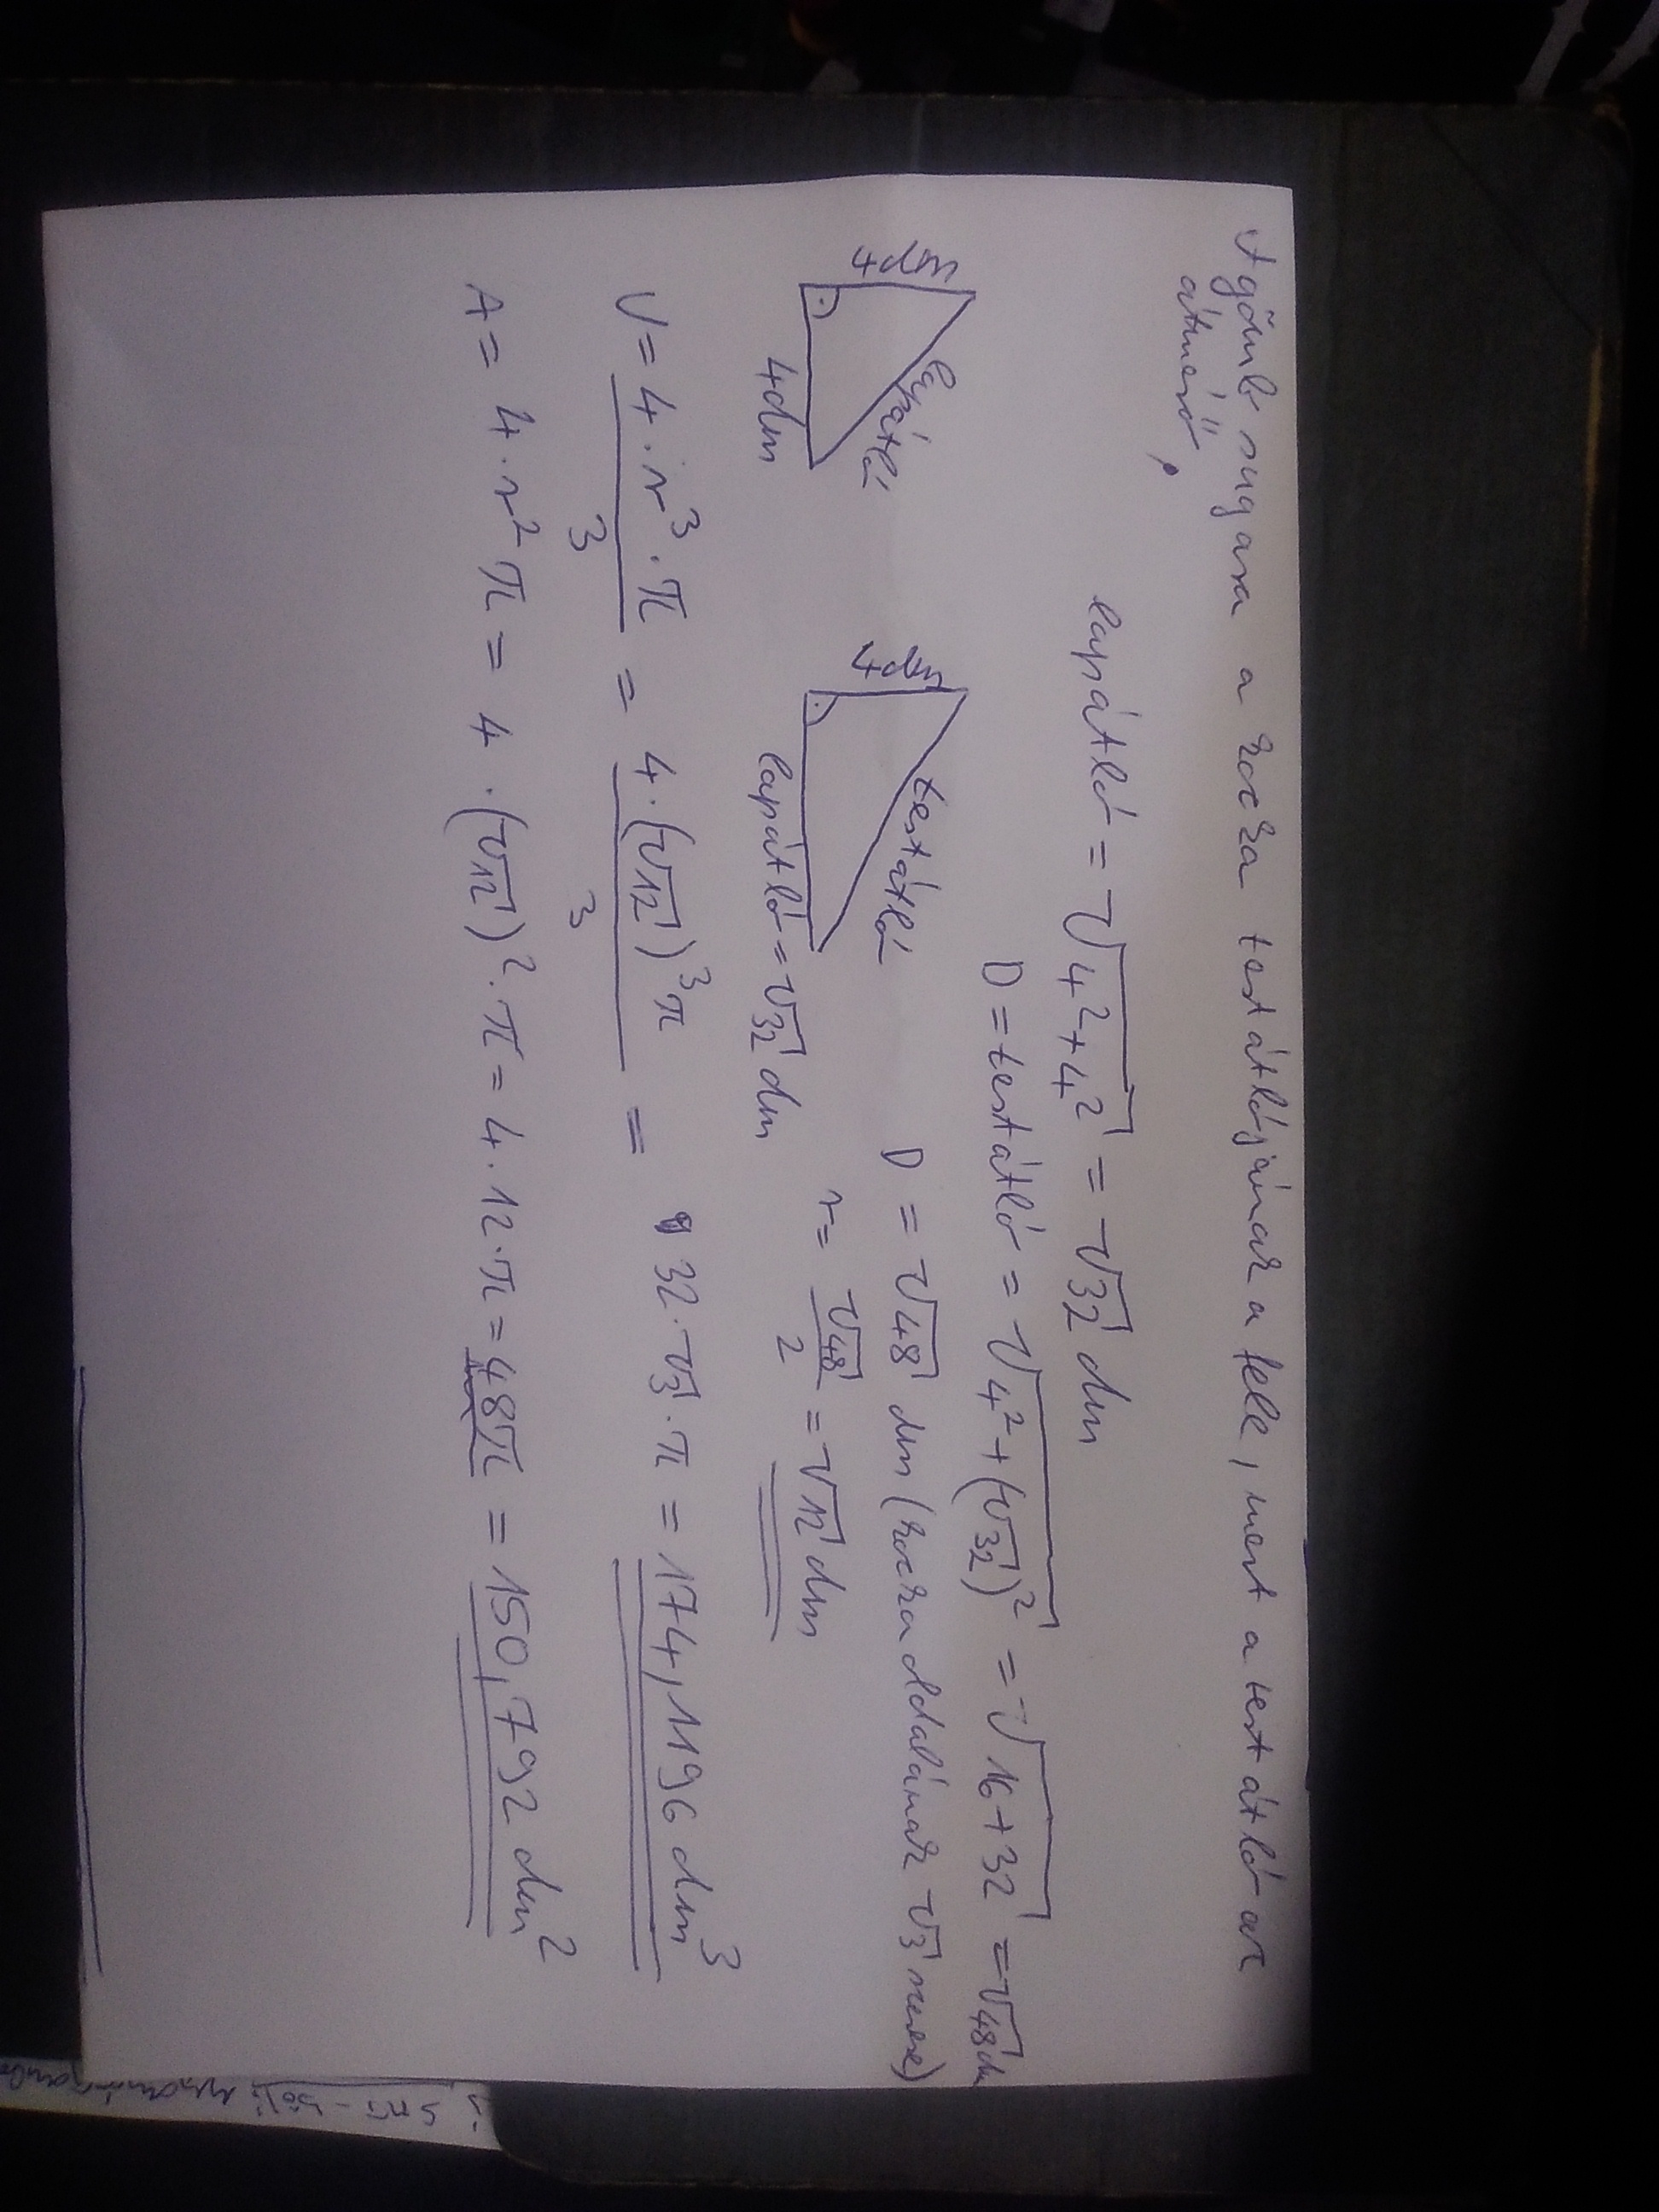 A gömb sugara a kocka testátlójának a fele, mert a testátló az
átmérő,
lapátló = √4²+4² = √32 dm
D = testátló = √4²+(√32)² = √16+32 = √48 dm
4dm
lapátló
4dm
4dm
testátló
lapátló = √32 dm
D = √48 dm (kocka oldalának √3 szorosa)
r = √48/2 = √12 dm
V = 4·r³·π/3 = 4·(√12)³π/3 = 32·√3·π = 174,1196 dm³
A = 4·r²π = 4·(√12)²·π = 4·12·π = 48π = 150,792 dm²